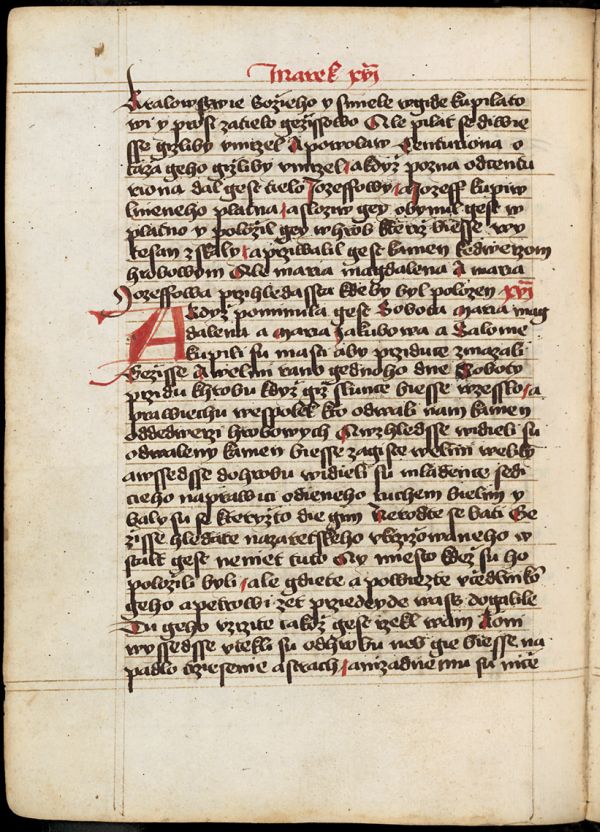 Marek xvi
kralowstwie Božieho y smiele wgide ku pilato
wi y prosi za tielo gežissowo Ale pilat se diwie
sse gižliby vmrzel A powolaw Centuriona o
taza geho gižliby vmrzel a když pozna od centu
riona dal gest tielo Jozeffowy A Jozeff kupiw
lnieneho platna a slozyw gey obynul gest w
platno y položil gey w hrob kterž biesse wy
tesan z skaly a prziwalil gest kamen ke dwerzom
hrobowym Ale maria magdalena A maria
Jozeffowa przihledassta kde by byl položen xvi
A když pominula gest Sobota maria mag
dalena a maria Jakubowa a Salome
kupili su masti aby prziduce zmazali
Gežisse A welmi rano gednoho dne Soboty
przidu k hrobu když giž slunce biesse wzesslo a
prawiechu wespolek kto odwali nam kamen
ode dwerzi hrobowych A wzhledsse widieli su
odwaleny kamen biesse zagiste welmi weliky
a wssedsse do hrobu widieli su mladence sedi
cieho na prawici odieneho ruchem bielim y
baly su se kteryžto die gim Nerodte se bati Ge
žisse hledate nazaretskeho vkrzižowaneho w
stalt gest neniet tuto Ay miesto kdež su ho
položili byli ale gdiete a powiezte včedlnikom
geho a petrowi žet prziedeyde wass do galile
Tu geho vzrzite iakož gest rzekl wam A oni
wyssedsse vtekli su od hrobu neb gie biesse na
padlo trziesenie a strach a nižadnemu su niče